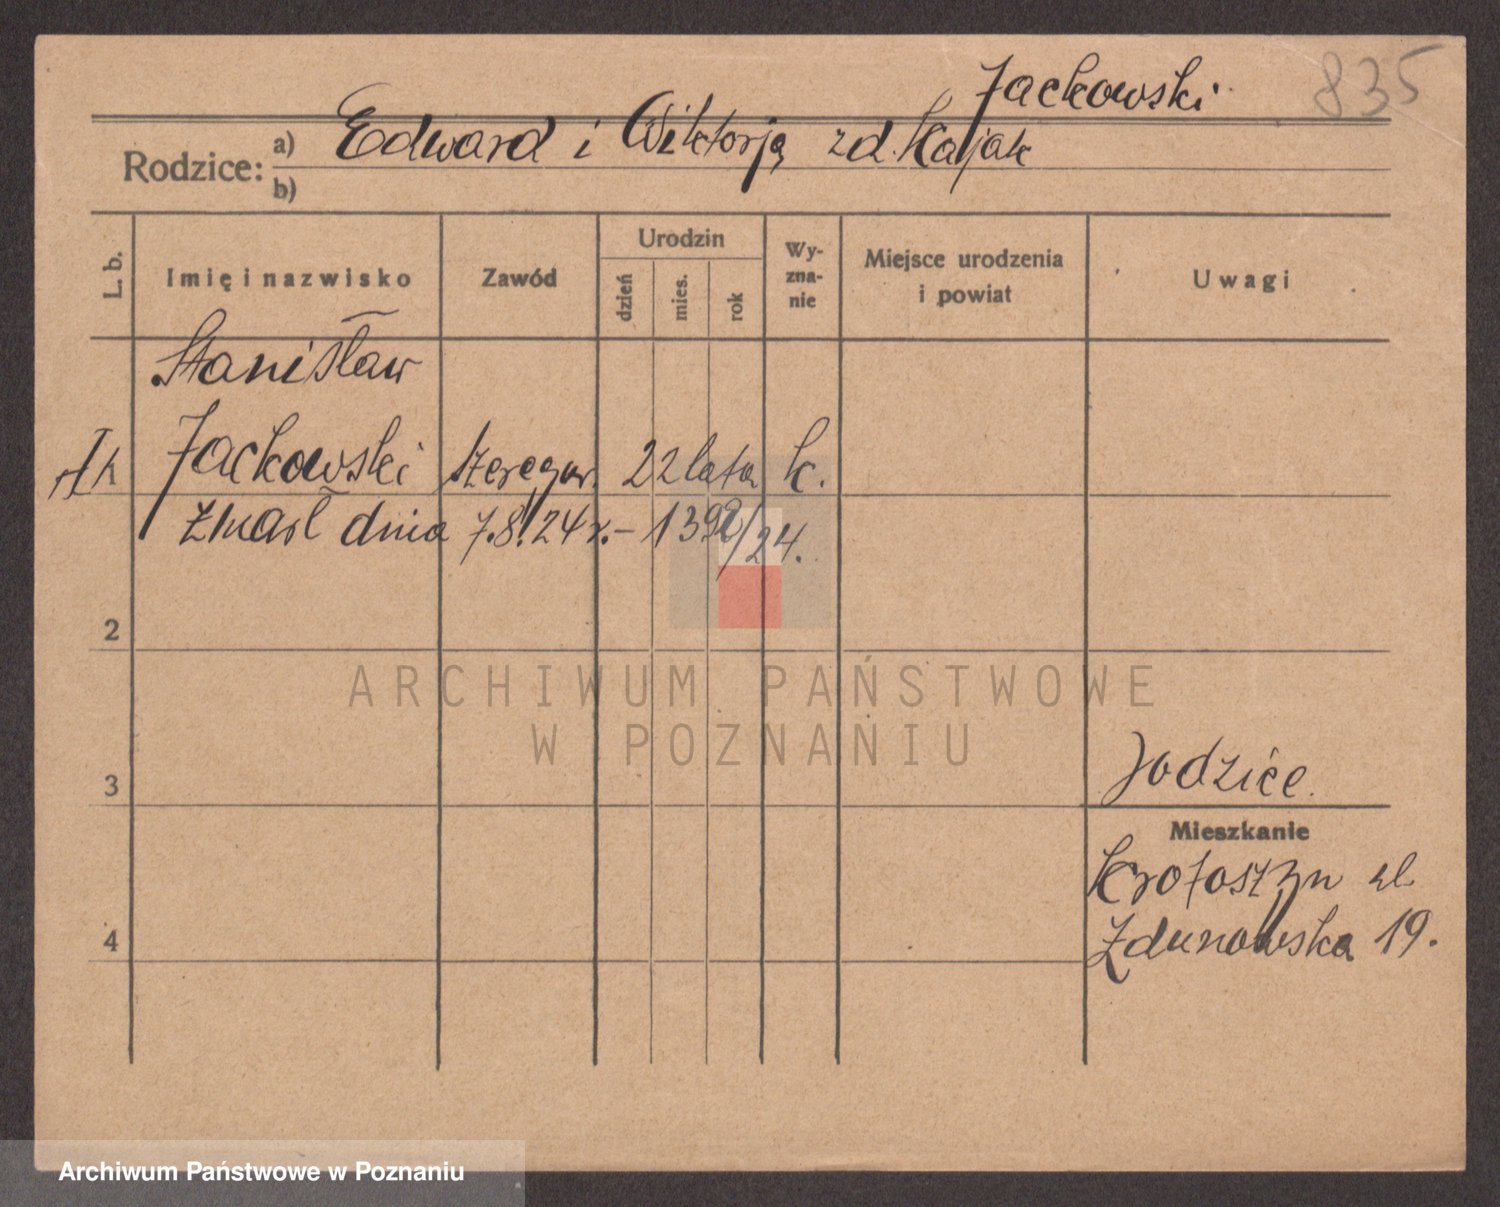 Jackowski
835
Rodzice: a) Edward i Wiktorją zd. Kajak
b)
L. b. Imię i nazwisko Zawód Urodzin dzień mies. rok Wy-zna-nie Miejsce urodzenia i powiat Uwagi
Stanisław
Jackowski szeregow. 22 lata k.
zmarł dnia 7.8.24 r. – 1392/24.
2
ARCHIWUM PAŃSTWOWE
W POZNANIU
3
rodzice.
Mieszkanie
Krotoszyn ul.
4
Zdunowska 19.
Archiwum Państwowe w Poznaniu